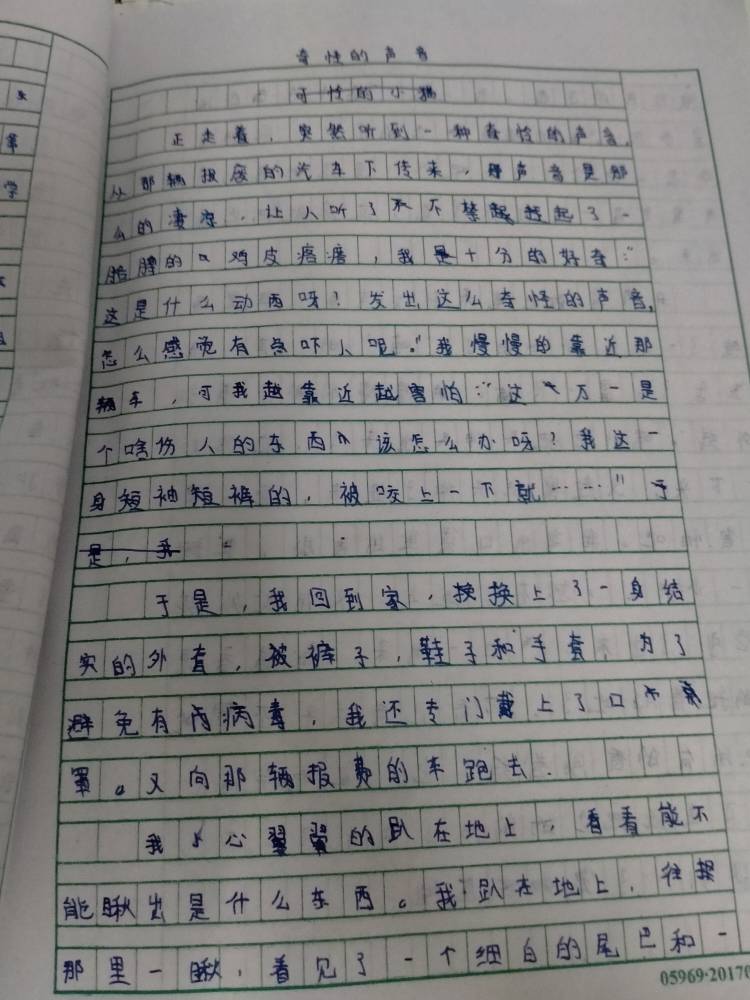 奇怪的声音
可怪的小猫
正走着，突然听到一种奇怪的声音，
从那辆报废的汽车下传来，声音是那
么的凄凉，让人听了不禁起了一
胳膊的鸡皮疙瘩，我是十分的好奇：“
这是什么动西呀？发出这么奇怪的声音，
怎么感觉有点吓人呢。”我慢慢的靠近那
辆车，可我越靠近越害怕：“这万一是
个啥伤人的东西该怎么办呀？我这一
身短袖短裤的，被咬上一下就……”于
是，我
于是，我回到家，换换上了一身结
实的外套，被裤子，鞋子和手套，为了
避免有丙病毒，我还专门戴上了口
罩。又向那辆报费的车跑去．
我小心翼翼的趴在地上，看看能不
能瞅出是什么东西。我趴在地上，往
那里一瞅，看见了一个细白的尾巴和一
05969·2017
学